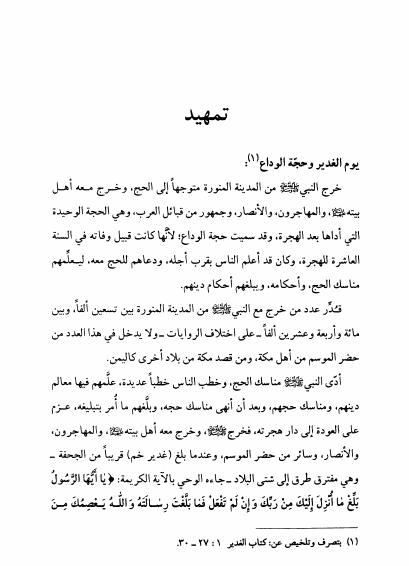 تمهيد
يوم الغدير وحجّة الوداع(١):
خرج النبيﷺ من المدينة المنورة متوجهاً إلى الحج، وخرج معه أهل
بيته، والمهاجرون، والأنصار، وجمهور من قبائل العرب، وهي الحجة الوحيدة
التي أداها بعد الهجرة، وقد سميت حجة الوداع؛ لأنّها كانت قبيل وفاته في السنة
العاشرة للهجرة، وكان قد أعلم الناس بقرب أجله، ودعاهم للحج معه، ليـعلّمهم
مناسك الحج، وأحكامه، ويبلغهم أحكام دينهم.
قـُدِّر عدد من خرج مع النبيﷺ من المدينة المنورة بين تسعين ألفاً، وبين
مائة وأربعة وعشرين ألفاً ـ على اختلاف الروايات ـ ولا يدخل في هذا العدد من
حضر الموسم من أهل مكة، ومن قصد مكة من بلاد أخرى كاليمن.
أدّى النبيﷺ مناسك الحج، وخطب الناس خطباً عديدة، علّمهم فيها معالم
دينهم، ومناسك حجهم، وبعد أن أنهى مناسك حجه، وبلّغهم ما أُمر بتبليغه، عـزم
على العودة إلى دار هجرته، فخرجﷺ، وخرج معه أهل بيته، والمهاجرون،
والأنصار، وسائر من حضر الموسم، وعندما بلغ (غدير خم) قريباً من الجحفة ـ
وهي مفترق طرق إلى شتى البلاد ـ جاءه الوحي بالآية الكريمة: ﴿يٰا أَيُّهَا الرَّسُولُ
بَلِّغْ مٰا أُنْزِلَ إِلَيْكَ مِنْ رَبِّكَ وَإِنْ لَمْ تَفْعَلْ فَمٰا بَلَّغْتَ رِسٰالَتَهُ وَاللّٰهُ يَـعْصِمُكَ مِـنَ
(١) بتصرف وتلخيص عن: كتاب الغدير ١ : ٢٧ ـ ٣٠.